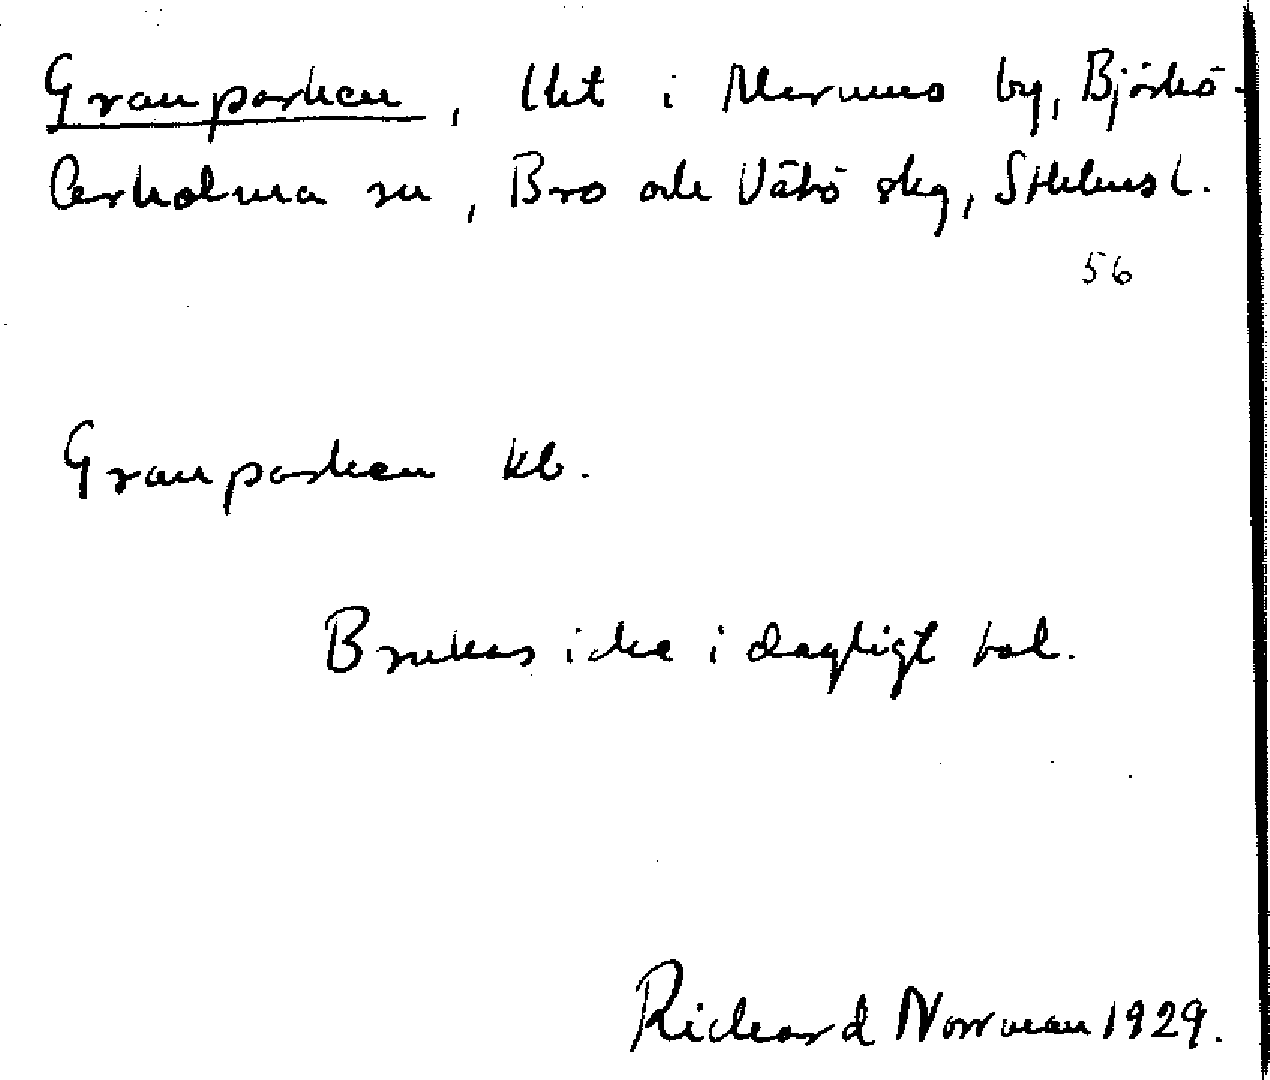 Granparken, lht i Marums by, Björkö-
Arholma sn, Bro och Vätö skg, Sthlms l.
56
Granparken kb.
Brukas icke i dagligt tal.
Richard Norrman 1929.